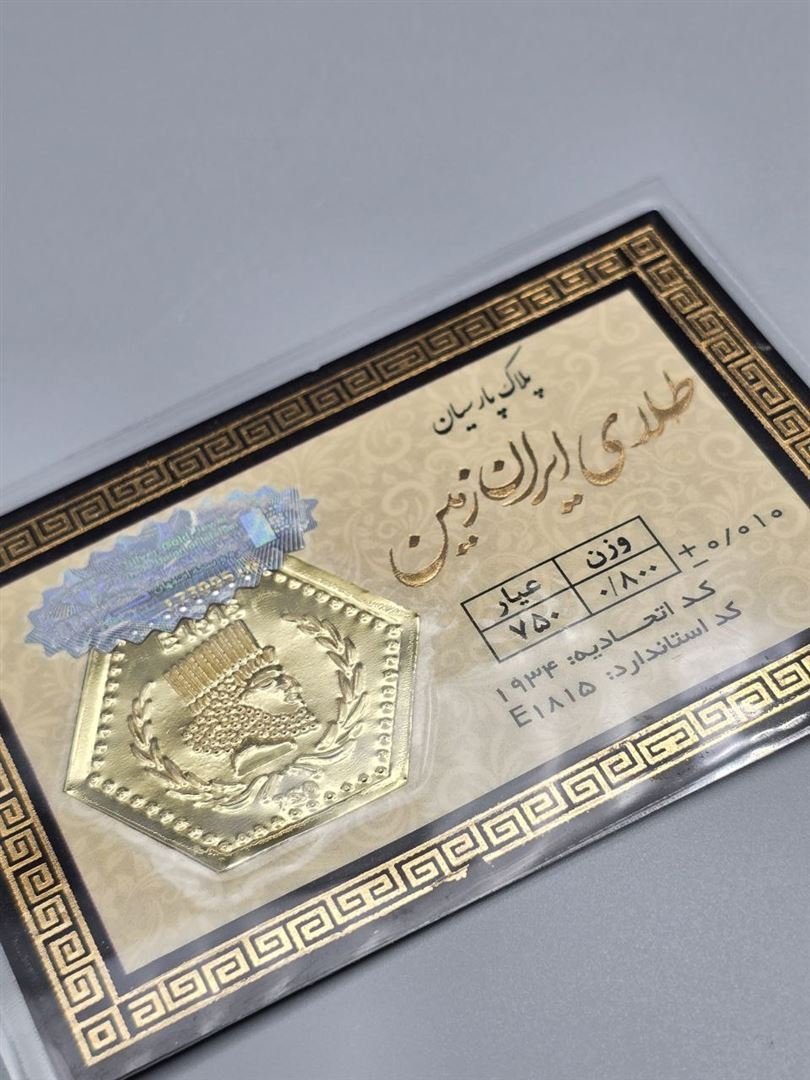 پلاک پارسیان
طلای ایران زمین
وزن عیار
۰/۸۰۰ ۷۵۰
±۰/۰۱۰
کد اتحادیه: ۱۹۳۴
کد استاندارد: E۱۸۱۵